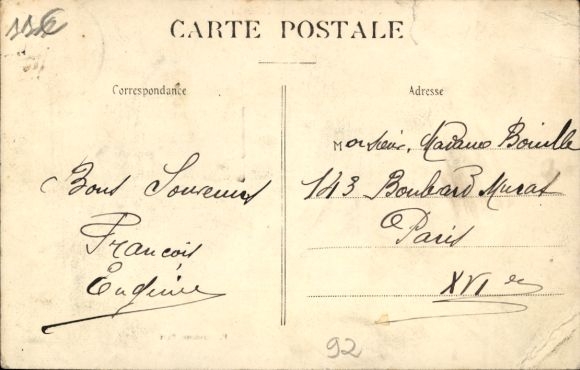 CARTE POSTALE
Correspondance
Bons Souvenirs
François
Eugénie
Adresse
Monsieur, Madame Bouille
143 Boulevard Murat
Paris
XVIe
92